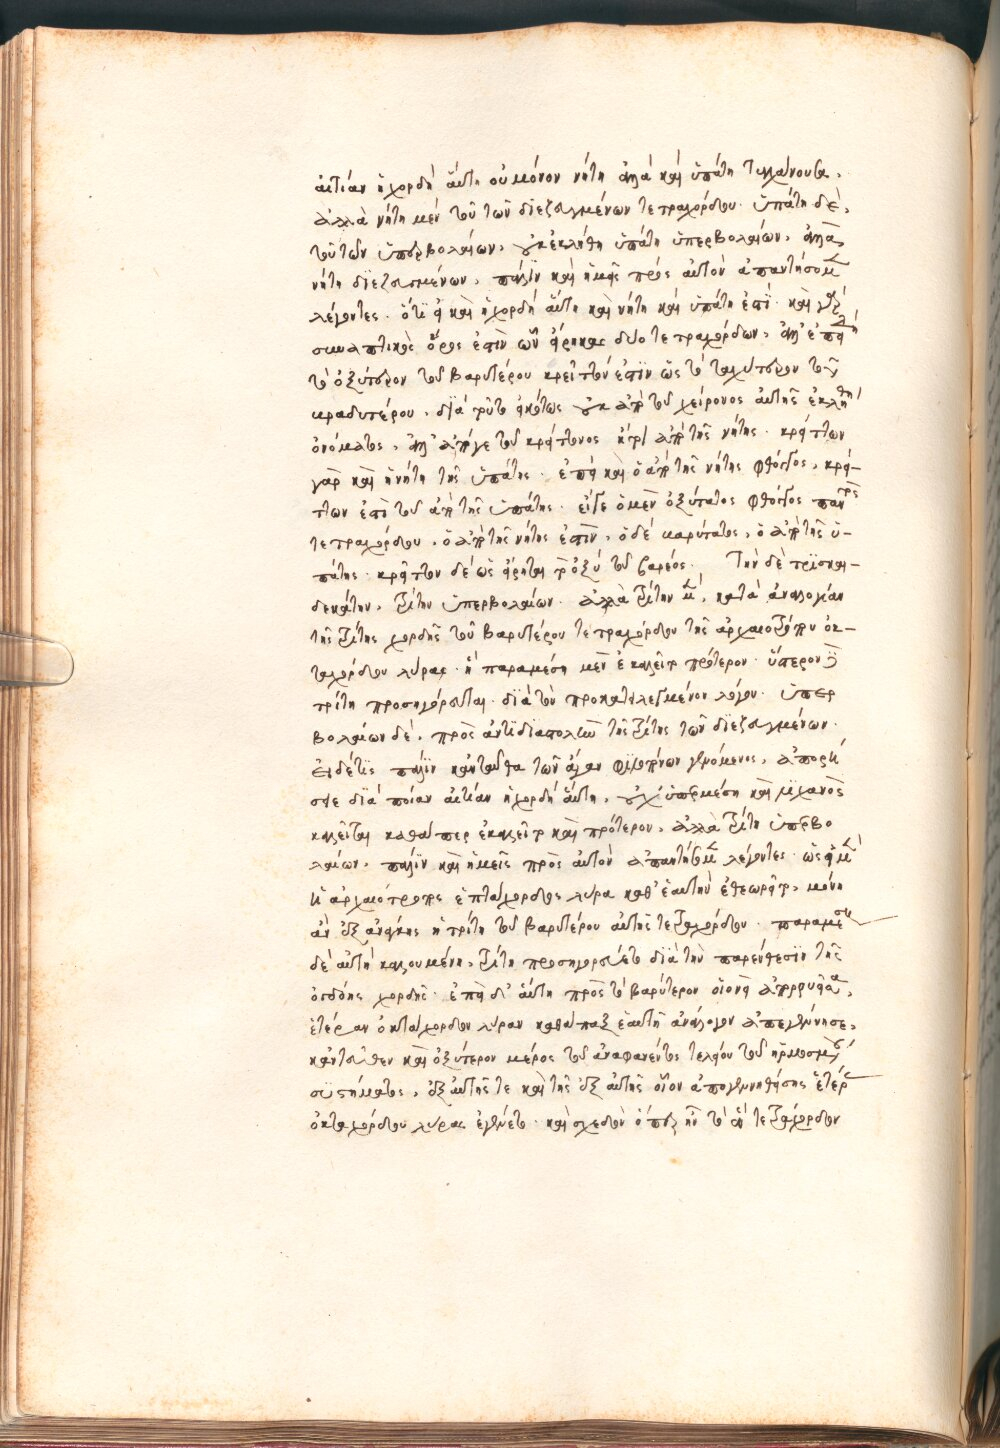 αἰτίαν ἡ χορδὴ αὕτη οὐ μόνον νήτη ἀλλὰ καὶ ὑπάτη τυγχάνουσα.
ἀλλὰ νήτη μὲν τοῦ τῶν διεζευγμένων τετραχόρδου. ὑπάτη δὲ,
τοῦ τῶν ὑπερβολαίων, οὐκ ἐκλήθη ὑπάτη ὑπερβολαίων, ἀλλὰ
νήτη διεζευγμένων. πάλιν καὶ ἡμεῖς πρὸς αὐτὸν ἀπαντήσομεν
λέγοντες. ὅτι εἰ καὶ ἡ χορδὴ αὕτη καὶ νήτη καὶ ὑπάτη ἐστὶ. καὶ
συναπτικὸς ὅρος ἐστὶν ὧν εἴρηκας δύο τετραχόρδων, ἀλλ' ἐπεὶ
τὸ ὀξύτερον τοῦ βαρυτέρου κρεῖττόν ἐστιν ὡς τὸ ταχύτερον τοῦ
βραδυτέρου. διὰ τοῦτο εἰκότως οὐκ ἀπὸ τοῦ χείρονος αὐτῆς ἐκλήθη
ὀνόματος, ἀλλ' ἀπό γε τοῦ κρείττονος ἤτοι ἀπὸ τῆς νήτης. κρείττων
γὰρ καὶ ἡ νήτη τῆς ὑπάτης. ἐπεὶ καὶ ὁ ἀπὸ τῆς νήτης φθόγγος, κρεί-
ττων ἐστὶ τοῦ ἀπὸ τῆς ὑπάτης. εἴγε ὁ μὲν ὀξύτατος φθόγγος παντὸς
τετραχόρδου, ὁ ἀπὸ τῆς νήτης ἐστὶν, ὁ δὲ βαρύτατος, ὁ ἀπὸ τῆς ὑ-
πάτης. κρεῖττον δὲ ὡς εἴρηται τὸ ὀξὺ τοῦ βαρέος. Τὴν δὲ τρισκαι-
δεκάτην, τρίτην ὑπερβολαίων. ἀλλὰ τρίτην μὲν, κατὰ ἀναλογίαν
τῆς τρίτης χορδῆς τοῦ βαρυτέρου τετραχόρδου τῆς ἀρχαιοτρόπου ὀκ-
ταχόρδου λύρας. ἡ παραμέση μὲν ἐκαλεῖτο πρότερον. ὕστερον δὲ
τρίτη προσηγόρευται. διὰ τὸν προκαταλεγμένον λόγον. ὑπερ
βολαίων δὲ, πρὸς ἀντιδιαστολὴν τῆς τρίτης τῶν διεζευγμένων.
εἰ δέ τις πάλιν κἀνταῦθα τῶν ἄγαν φιλοπόνων γενόμενος, ἀπορή
σειε διὰ ποίαν αἰτίαν ἡ χορδὴ αὕτη, οὐχ' ὑπερμέση καὶ λιχανὸς
καλεῖται καθάπερ ἐκαλεῖτο καὶ πρότερον, ἀλλὰ τρίτη ὑπερβο
λαίων. πάλιν καὶ ἡμεῖς πρὸς αὐτὸν ἀπαντήσομεν λέγοντες. ὡς εἰ μὲν
ἡ ἀρχαιότροπος ἑπτάχορδος λύρα καθ' ἑαυτὴν ἐθεωρεῖτο, μόνη
ἂν ἐξ ἀνάγκης ἡ τρίτη τοῦ βαρυτέρου αὐτῆς τετραχόρδου. παραμέση
δὲ αὐτὴ καλουμένη, τρίτη προσηγορεύετο διὰ τὴν παρένθεσιν τῆς
ὀγδόης χορδῆς. ἐπεὶ δ' αὕτη πρὸς τὸ βαρύτερον οἱονεὶ ἀπορρυεῖσα,
ἑτέραν ὀκτάχορδον λύραν καθάπαξ ἑαυτῇ ἀνάλογον ἀπεγέννησε,
κἀντεῦθεν καὶ ὀξύτερον μέρος τοῦ ἀναφανέντος τελείου τοῦ ἡρμοσμένου
συστήματος, ἐξ αὐτῆς τε καὶ τῆς ἐξ αὐτῆς οἷον ἀπογεννηθείσης ἑτέρας
ὀκταχόρδου λύρας ἐγένετο. καὶ σχεδὸν ὅπερ ἦν τὸ τετράχορδον